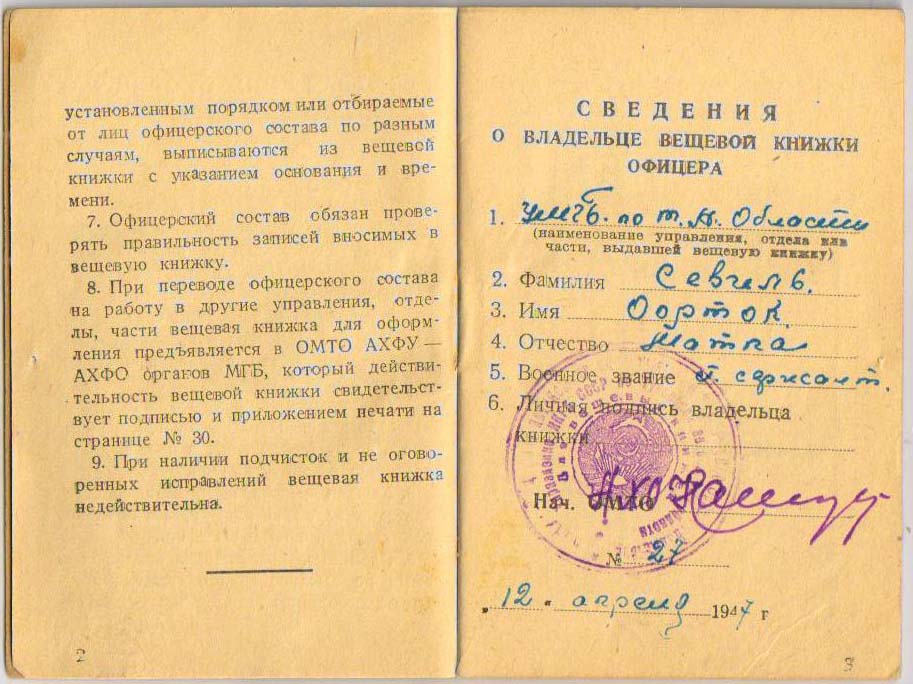 установленным порядком или отбираемые
от лиц офицерского состава по разным
случаям, выписываются из вещевой
книжки с указанием основания и вре-
мени.
7. Офицерский состав обязан прове-
рять правильность записей вносимых в
вещевую книжку.
8. При переводе офицерского состава
на работу в другие управления, отде-
лы, части вещевая книжка для оформ-
ления предъявляется в ОМТО АХФУ —
АХФО органов МГБ, который действи-
тельность вещевой книжки свидетельст-
вует подписью и приложением печати на
странице № 30.
9. При наличии подчисток и не огово-
ренных исправлений вещевая книжка
недействительна.
2
СВЕДЕНИЯ
О ВЛАДЕЛЬЦЕ ВЕЩЕВОЙ КНИЖКИ
ОФИЦЕРА
1. УМГБ. по т. А. Области
(наименование управления, отдела или
части, выдавшей вещевую книжку)
2. Фамилия Севгель.
3. Имя Оорток.
4. Отчество
5. Военное звание сержант.
6. Личная подпись владельца
книжки
Нач. ОМТО
№ 27
„ 12 " апреля 1947 г
3